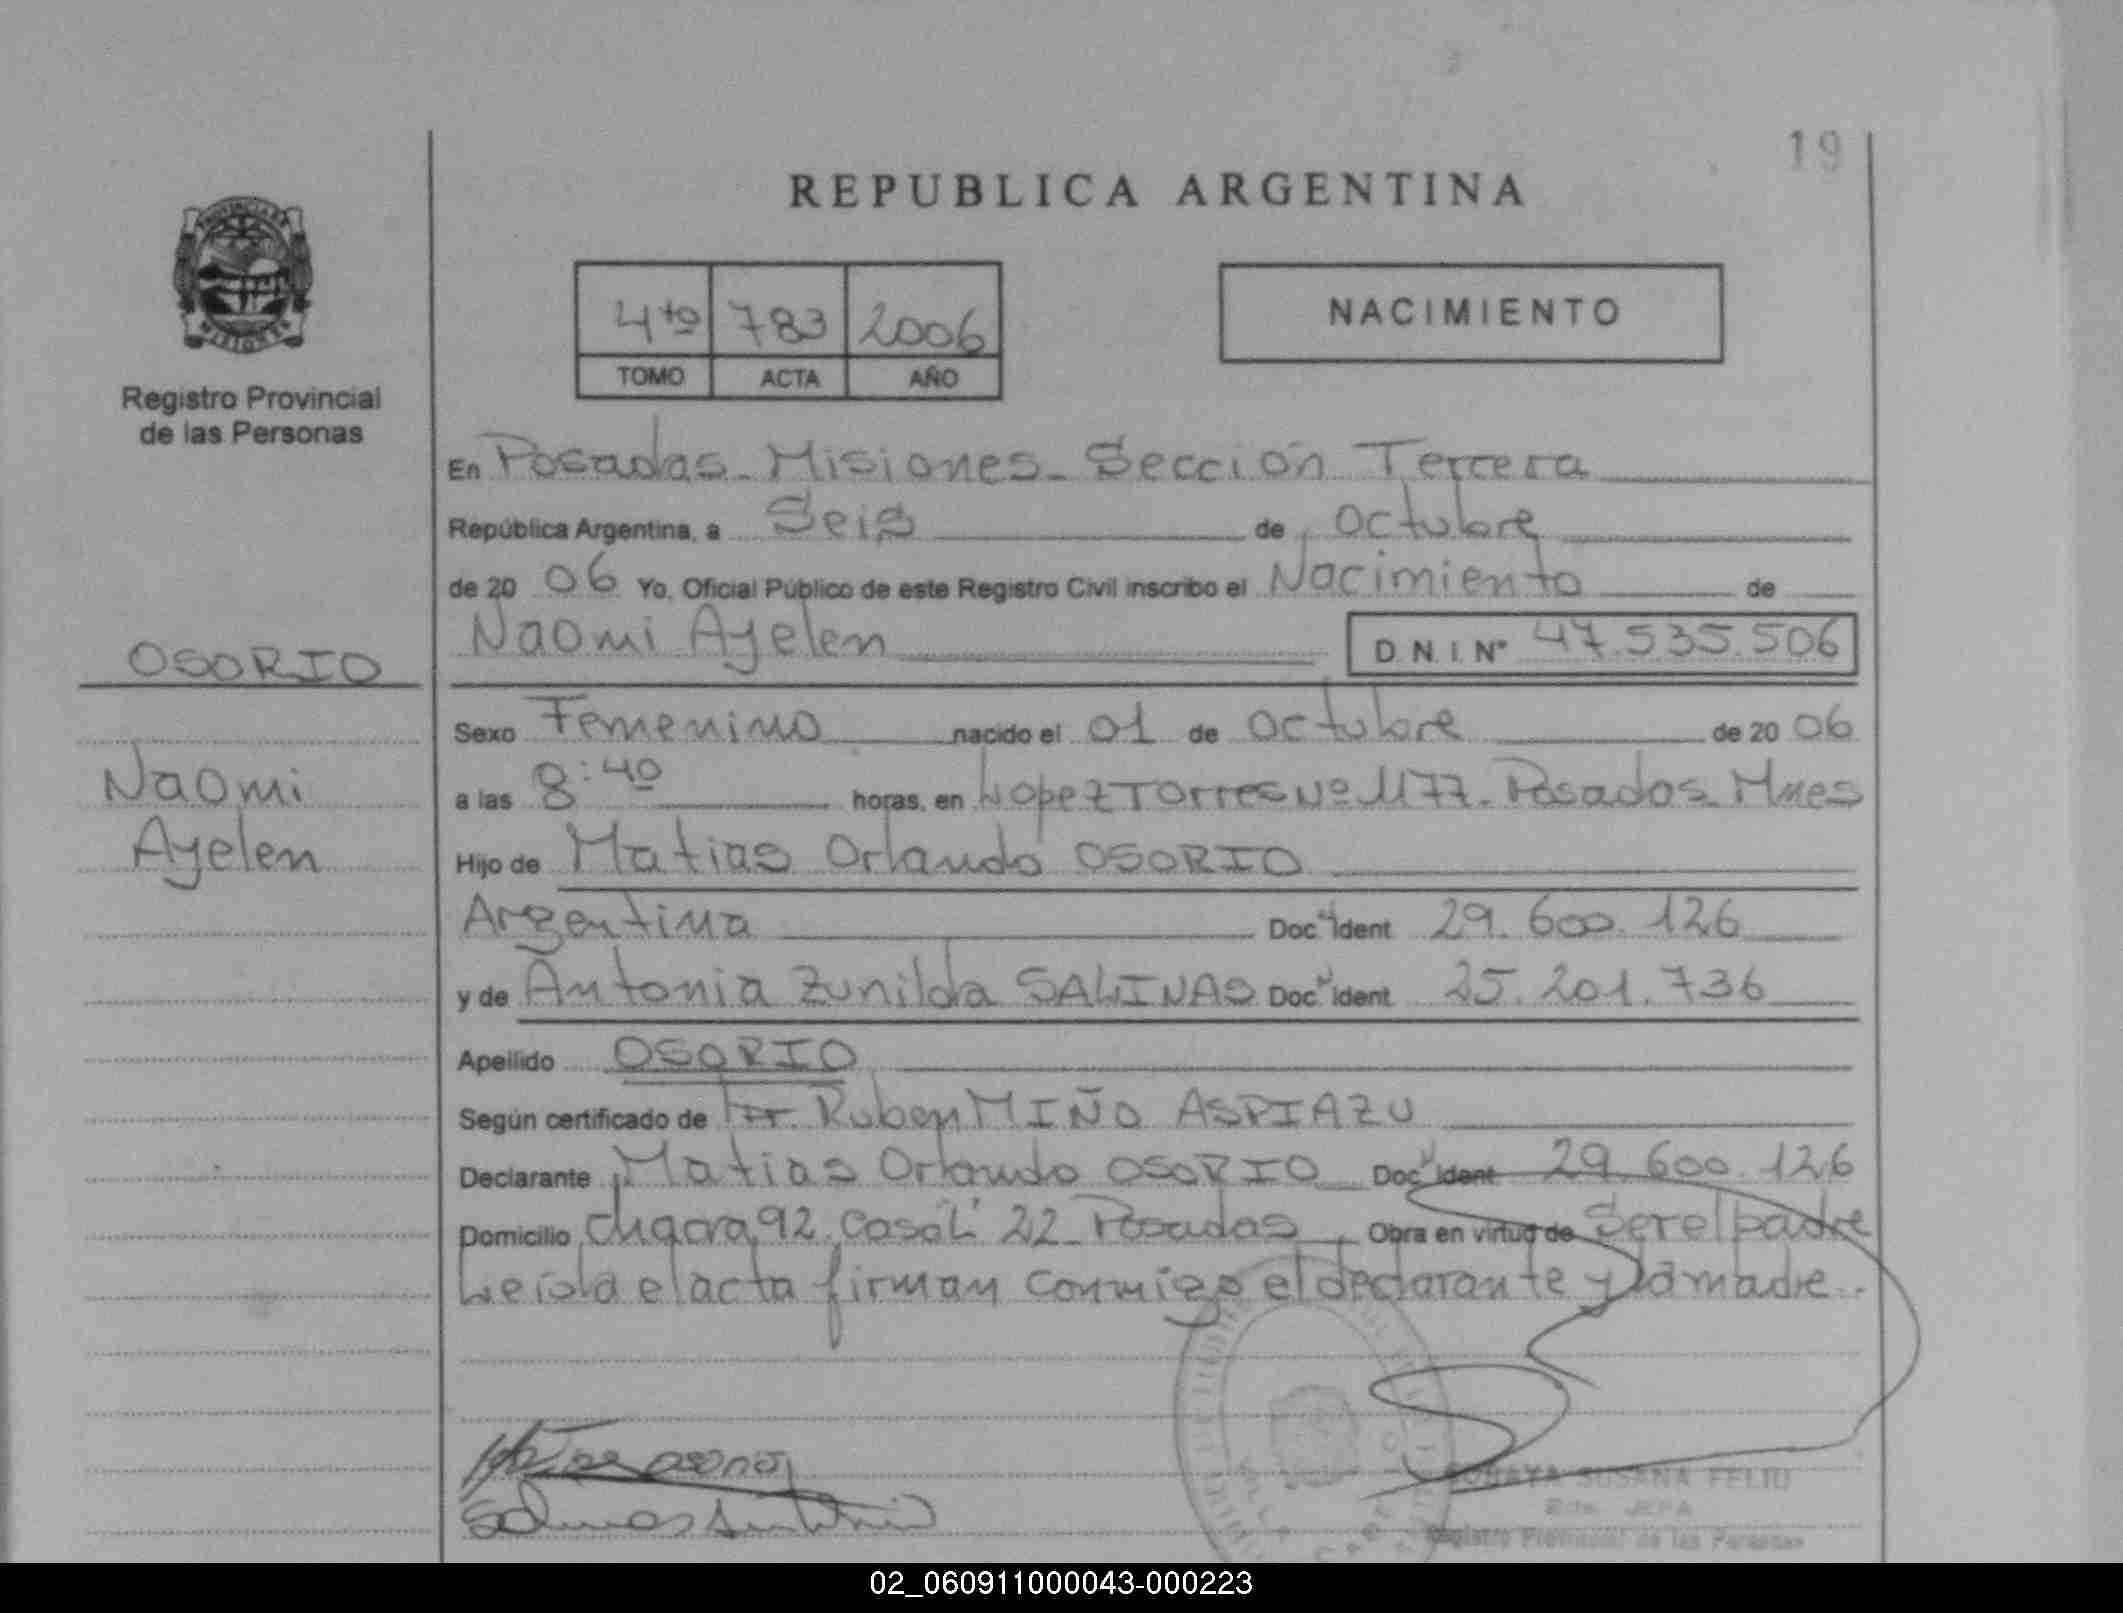 19
REPUBLICA ARGENTINA
PROVINCIA DE
MISIONES
Registro Provincial
de las Personas
4to 783 2006
TOMO ACTA AÑO
NACIMIENTO
En Posadas - Misiones - Sección Tercera
República Argentina, a Seis de Octubre
de 20 06 Yo, Oficial Público de este Registro Civil inscribo el Nacimiento de
Naomi Ayelen D.N.I. Nº 47.535.506
OSORIO
Naomi
Ayelen
Sexo Femenino nacido el 01 de Octubre de 20 06
a las 8:40 horas, en Lopez Torres Nº 1177. Posadas Mnes
Hijo de Matias Orlando OSORIO
Argentina Doc. Ident 29.600.126
y de Antonia Zunilda SALINAS Doc. Ident 25.201.736
Apellido OSORIO
Según certificado de Dr. Ruben MIÑO ASPIAZU
Declarante Matias Orlando OSORIO Doc. Ident 29.600.126
Domicilio Chacra 92 Casa 22 - Posadas Obra en virtud de Ser el padre
Leída el acta firman conmigo el declarante y la madre.
Salinas Antonia
SORAYA SUSANA FELIU
JEFA
Registro Provincial de las Personas
02_060911000043-000223